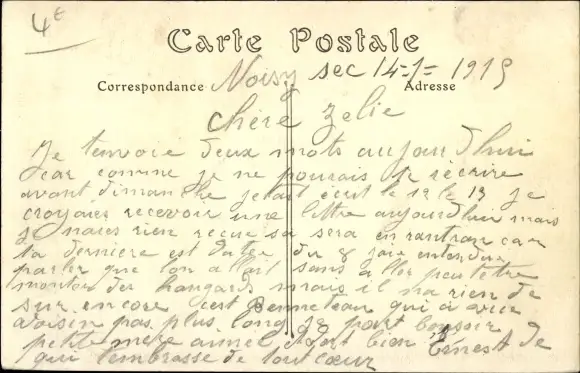 4€
Carte Postale
Correspondance
Adresse
Noisy sec 14-1-1915
chere zelie
Je tenvoie deux mots aujourdhui
car comme je ne pourais pas récrire
avant dimanche jetait écrit le 12 le 13 je
croyais recevoir une lettre aujourdhui mais
je naies rien recue sa sera en rantran car
ta derniere est datée du 8 jaie entendue
parler que lon allait sans aller peutetre
monton des hangards mais il na rien de
sur encore cest Benneteau qui a
voisin pas plus long je part bonsoir
petite mere annel dort bien Ernest de
qui tembrasse de tout cœur